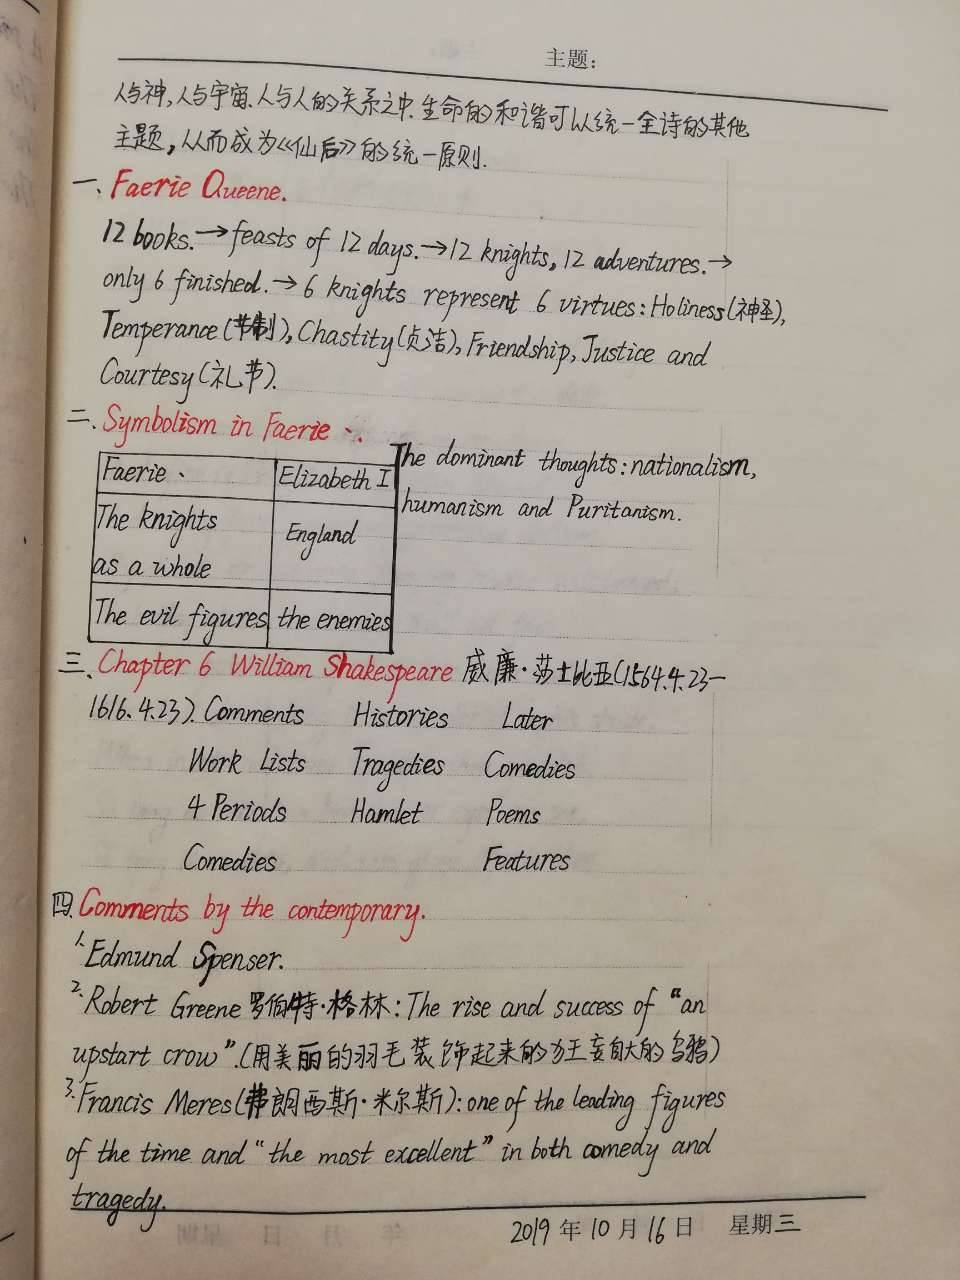 主题：
人与神,人与宇宙、人与人的关系之中.生命的和谐可以统一全诗的其他
主题,从而成为《仙后》的统一原则.
一、Faerie Queene.
12 books.→feasts of 12 days.→12 knights, 12 adventures.→
only 6 finished.→6 knights represent 6 virtues: Holiness(神圣),
Temperance(节制), Chastity(贞洁), Friendship, Justice and
Courtesy(礼节).
二、Symbolism in Faerie 、.
Faerie 、 Elizabeth I
The dominant thoughts: nationalism,
humanism and Puritanism.
The knights
as a whole England
The evil figures the enemies
三、Chapter 6 William Shakespeare 威廉·莎士比亚(1564.4.23—
1616.4.23). Comments Histories Later
Work Lists Tragedies Comedies
4 Periods Hamlet Poems
Comedies Features
四、Comments by the contemporary.
1.Edmund Spenser.
2.Robert Greene 罗伯特·格林: The rise and success of "an
upstart crow".(用美丽的羽毛装饰起来的狂妄自大的乌鸦)
3.Francis Meres(弗朗西斯·米尔斯): one of the leading figures
of the time and "the most excellent" in both comedy and
tragedy.
2019年10月16日 星期三